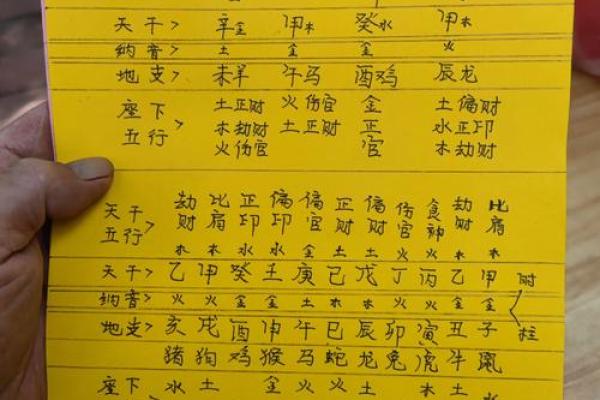 天干> 辛金 甲木 癸水 甲木
纳音> 土 金 金 火
地支> 未羊 午马 酉鸡 辰龙
座下 土正财 火伤官 金 土偏财
五行> 木劫财 土正财 正 水正印
火伤官 官 木劫财
劫 比 正 偏 偏 正 偏 伤 食 劫 比
天干 财 肩 印 印 官 财 财 官 神 财 肩
五行> 木 木 水 水 金 土 土 火 火 木 木
天干> 乙 甲 癸 壬 庚 己 戊 丁 丙 乙 甲 时
纳音> 火 火 金 金 土 木 木 火 火 金 金
地支> 亥 戌 酉 申 午 巳 辰 卯 寅 丑 子 柱
猪 狗 鸡 猴 马 蛇 龙 兔 虎 牛 鼠
座下 水 土 金 火 火 土 木 土